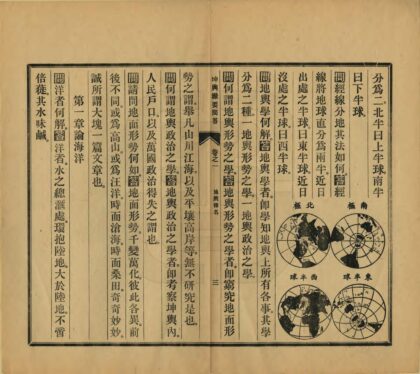 分爲二、北半曰上半球南半
曰下半球
問經線分地其法如何答經
線將地球直分爲兩半、近日
出處之半球曰東半球近日
沒處之半球曰西半球
南極
北極
東半球
西半球
問地輿學何解答地輿學者、卽學知地輿上所有各事、其學
分爲二種、一地輿形勢之學、一地輿政治之學
問何謂地輿形勢之學答地輿形勢之學者、卽窮究地面形
坤輿撮要問答
卷之一
地輿釋名
三
勢之謂、舉凡山川江海以及平壤高岸等、無不研究是也
問何謂地輿政治之學答地輿政治之學者、卽考察坤輿內、
人民戶口以及萬國政治得失之謂也
問請問地面形勢如何答地面形勢千變萬化彼此各異、前
後不同、或爲高山或爲汪洋、時而滄海、時而桑田、奇奇妙妙
誠所謂大塊一篇文章也
第一章論海洋
問洋者何解答洋者、水之總滙處、環抱陸地、大於陸地、不啻
倍蓰、其水味鹹